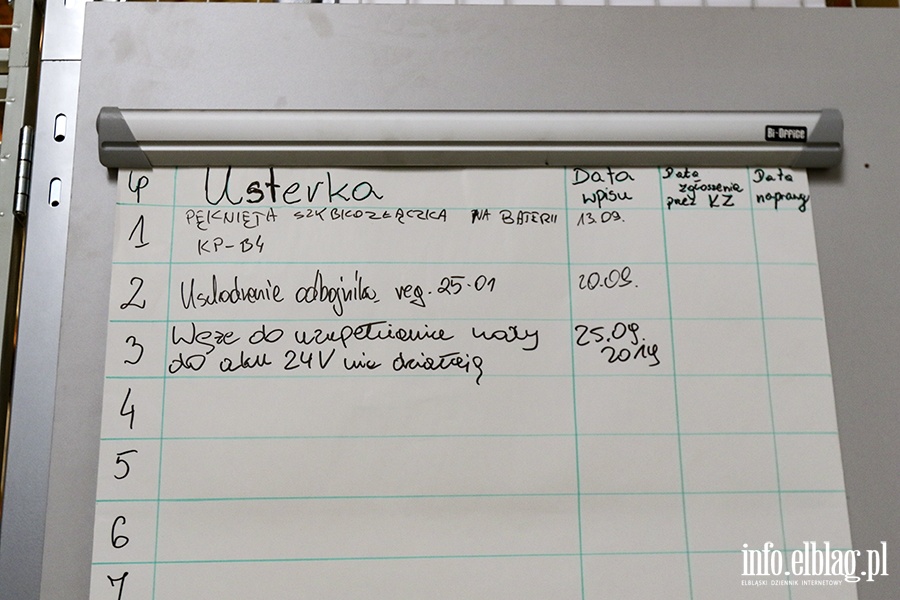 Bi-Office
Lp Usterka Data wpisu Data zgłoszenia przez KZ Data naprawy
1 PĘKNIĘTA SZYBKOZŁĄCZKA NA BATERII 13.09.
KP-B4
2 Uszkodzenie odbojnika reg. 25-01 20.09.
3 Węże do uzupełniania wody 25.09.
do aku 24V nie działają 2019
4
5
6
7
info.elblag.pl
ELBLĄSKI DZIENNIK INTERNETOWY